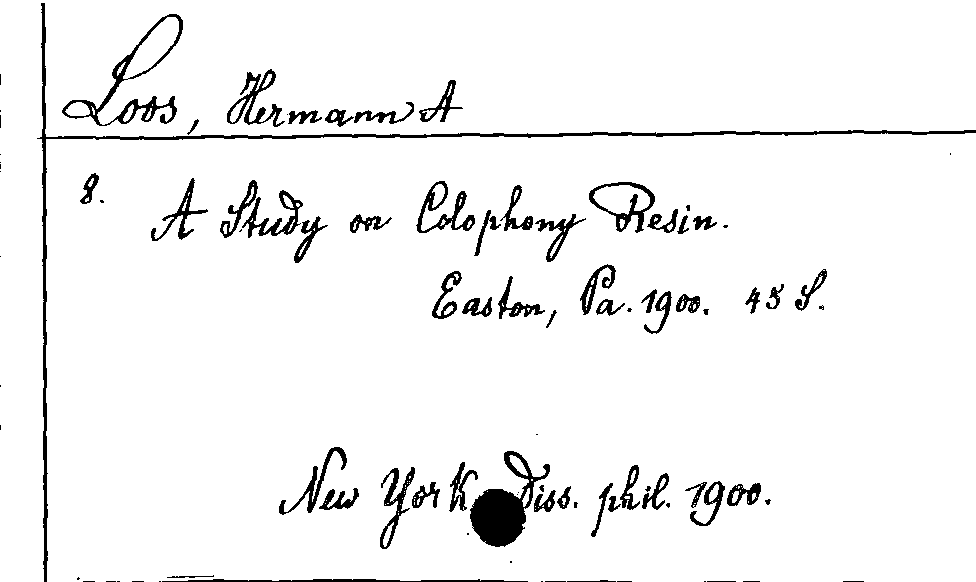 Loos, Hermann A
8. A Study on Colophony Resin.
Easton, Pa. 1900. 45 S.
New York Diss. phil. 1900.